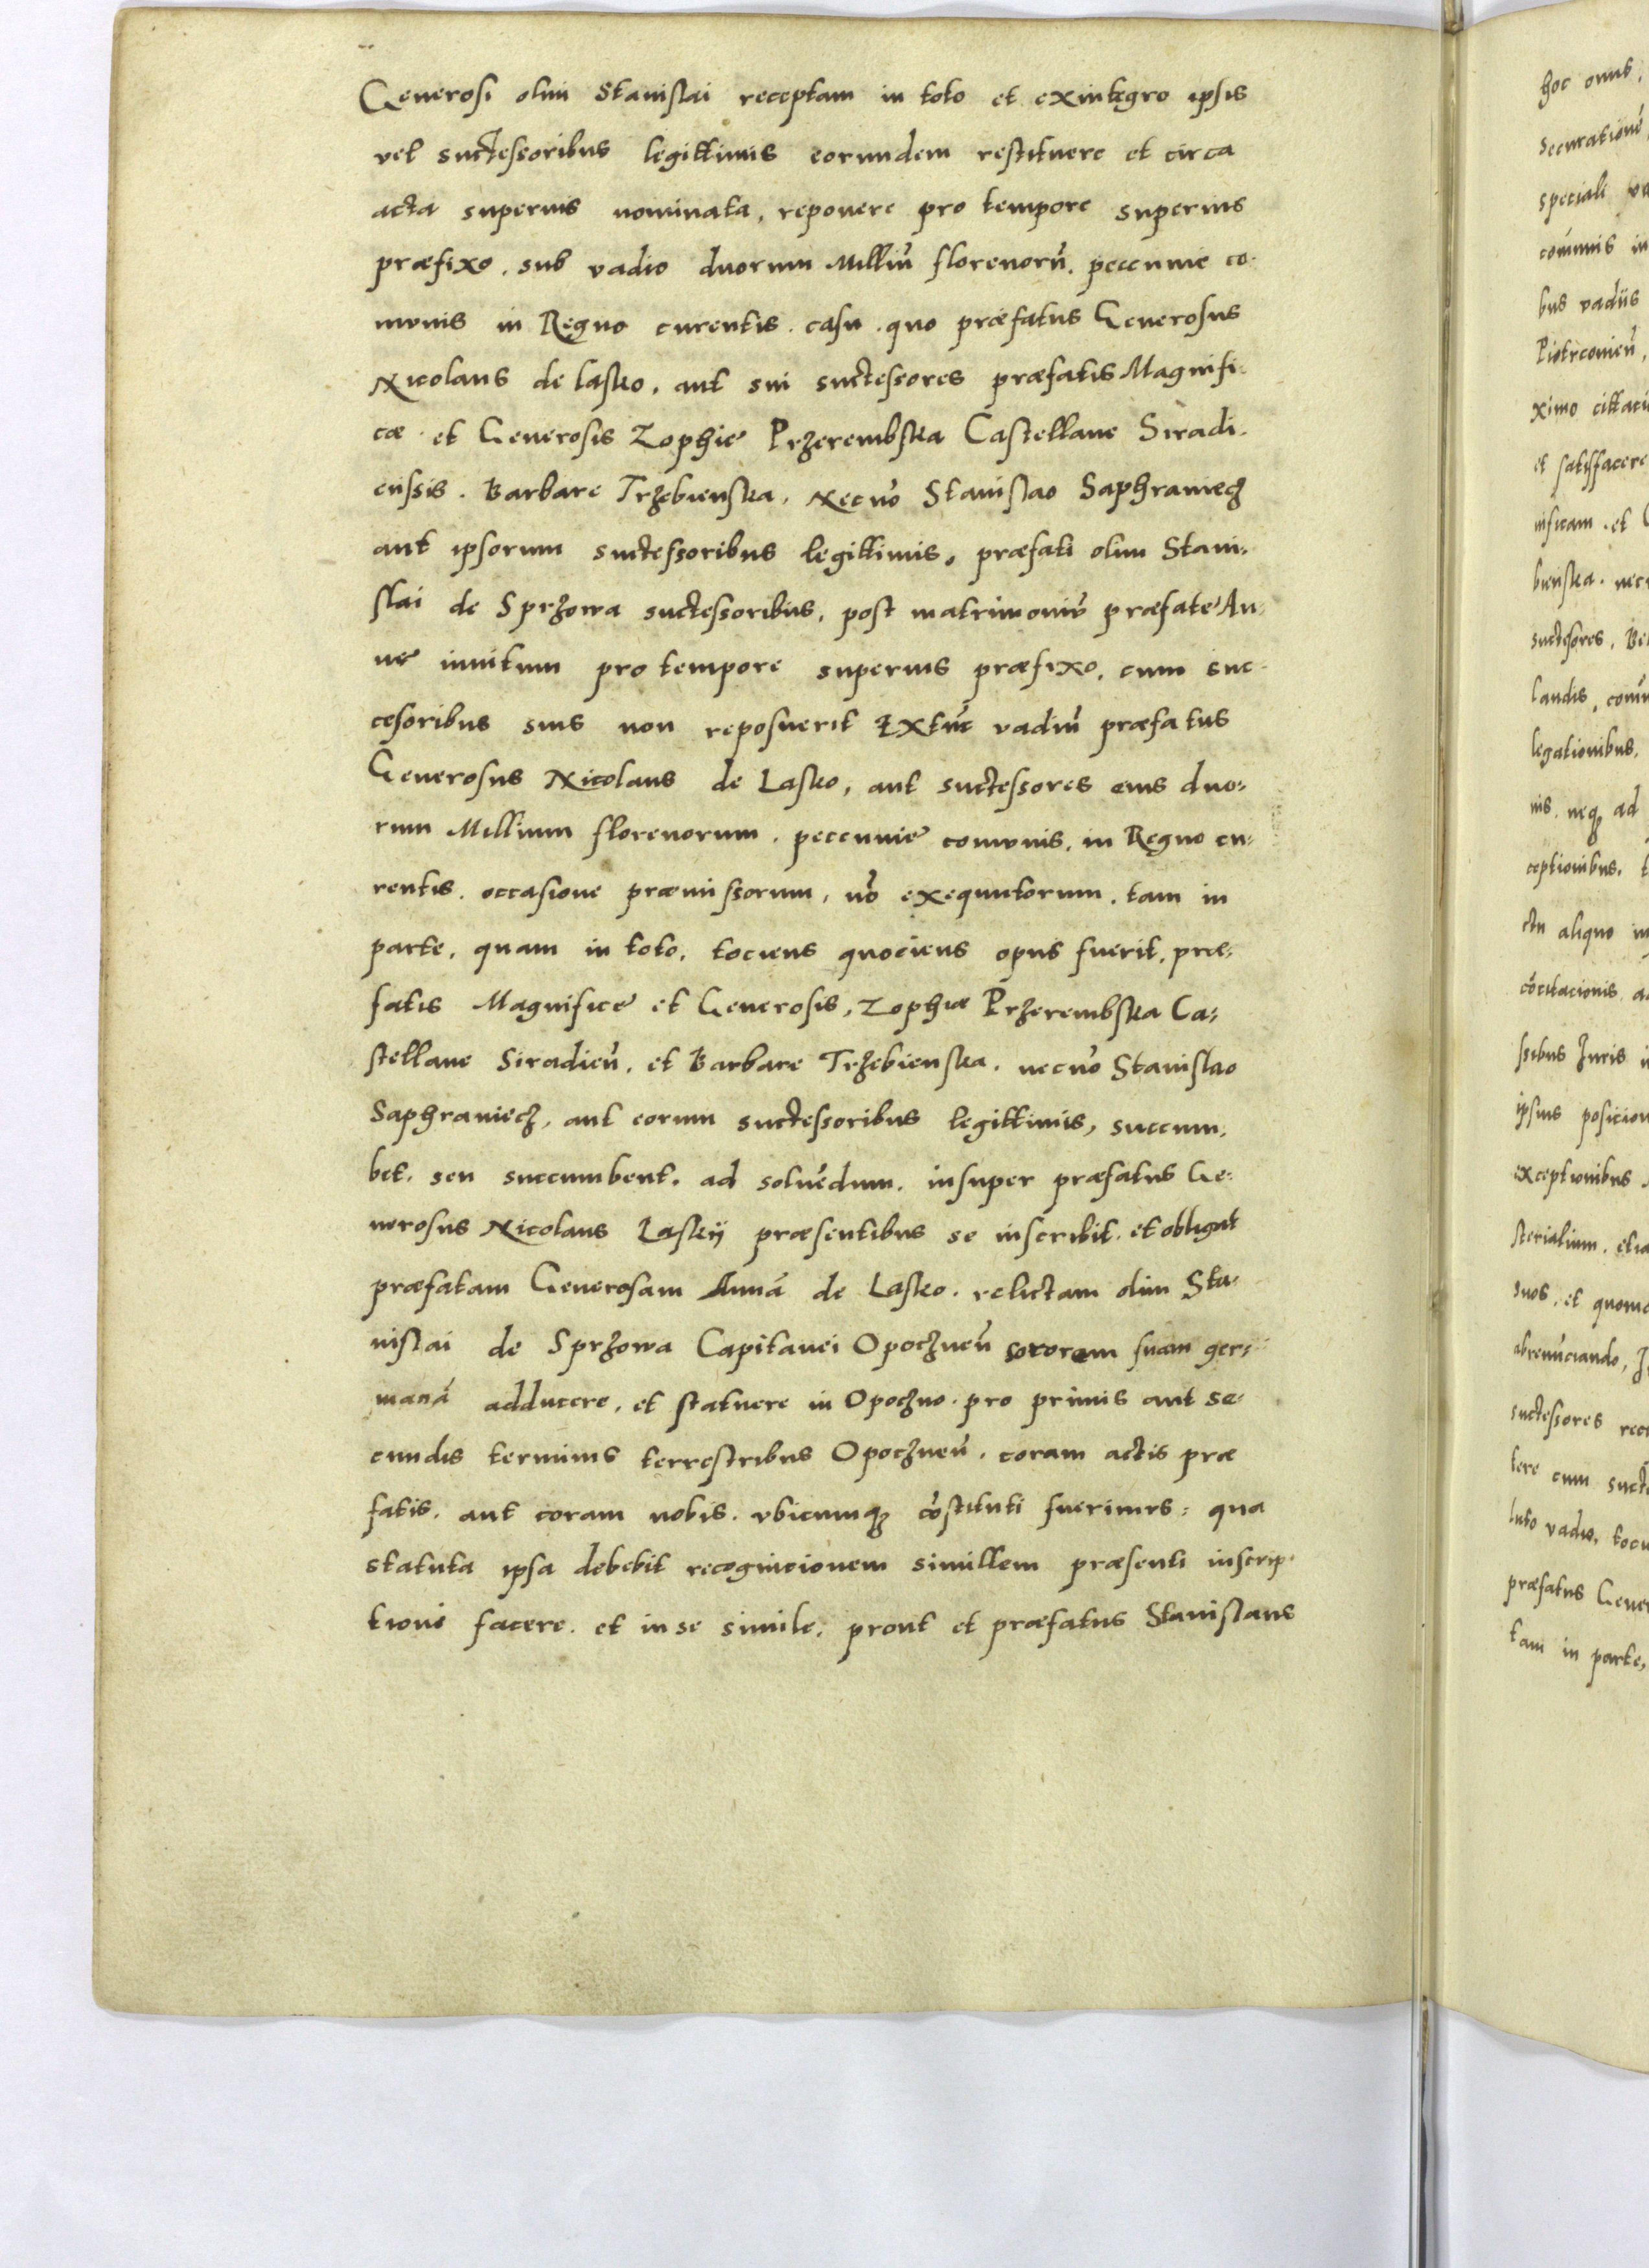 Generosi olim Stanislai receptam in toto et exintegro ipsis
vel suctessoribus legittimis eorundem restituere et circa
acta superius nominata, reponere pro tempore superius
præfixo. sub vadio duorum Milliũ florenorũ. peccunie co-
munis in Regno curentis. casu. quo præfatus Generosus
Nicolaus de Lasko, aut sui suctessores præfatis Magnifi-
cæ et Generosis Zophie Przerembska Castellane Siradi-
enssis. Barbare Trzebienska, Necnõ Stanislao Saphraniecz
aut ipsorum suctessoribus legittimis, præfati olim Stani-
slai de Sprzowa suctessoribus, post matrimoniũ præfate An-
ne initum pro tempore superius præfixo, cum suc-
cesoribus suis non reposuerit Extũc vadiũ præfatus
Generosus Nicolaus de Lasko, aut suctessores eius duo-
rum Millium florenorum. peccunie comunis, in Regno cu-
rentis. occasione præmissorum, nõ exequutorum. tam in
parte, quam in toto, tociens quociens opus fuerit, præ-
fatis Magnifice et Generosis, Zophiæ Przerembska Ca-
stellane Siradieñ, et Barbare Trzebienska. necnõ Stanislao
Saphraniecz, aut eorum suctessoribus legittimis, succum-
bet. seu succumbent. ad solvẽdum. insuper præfatus Ge-
nerosus Nicolaus Laskij præsentibus se inscribit. et obligat
præfatam Generosam Annã de Lasko. relictam olim Sta-
nislai de Sprzowa Capitanei Opoczneñ sororem suam ger-
manã adducere, et statuere in Opoczno. pro primis aut se-
cundis terminis terrestribus Opoczneñ. coram actis præ
fatis. aut coram nobis. vbicumqꝫ cõstituti fuerimus: qua
statuta ipsa debebit recognicionem simillem præsenti inscrip-
tioni facere. et in se simile. prout et præfatus Stanislaus
hoc onus,
securationẽ
speciali
comunis in
bus vadiis
Piotrconieñ,
ximo cittati
et satisfacere
nificam. et G
bienska. nec
suctessores,
landis,
legationibus.
nis. neqꝫ ad
ceptionibus.
ctu aliquo in
ssibus Iuris
ipsius posicion
exceptionibus
sterialium. etia
suos. et
abrenũciando,
suctessores
tere cum
luto vadio,
præfatus Gene
tam in parte,